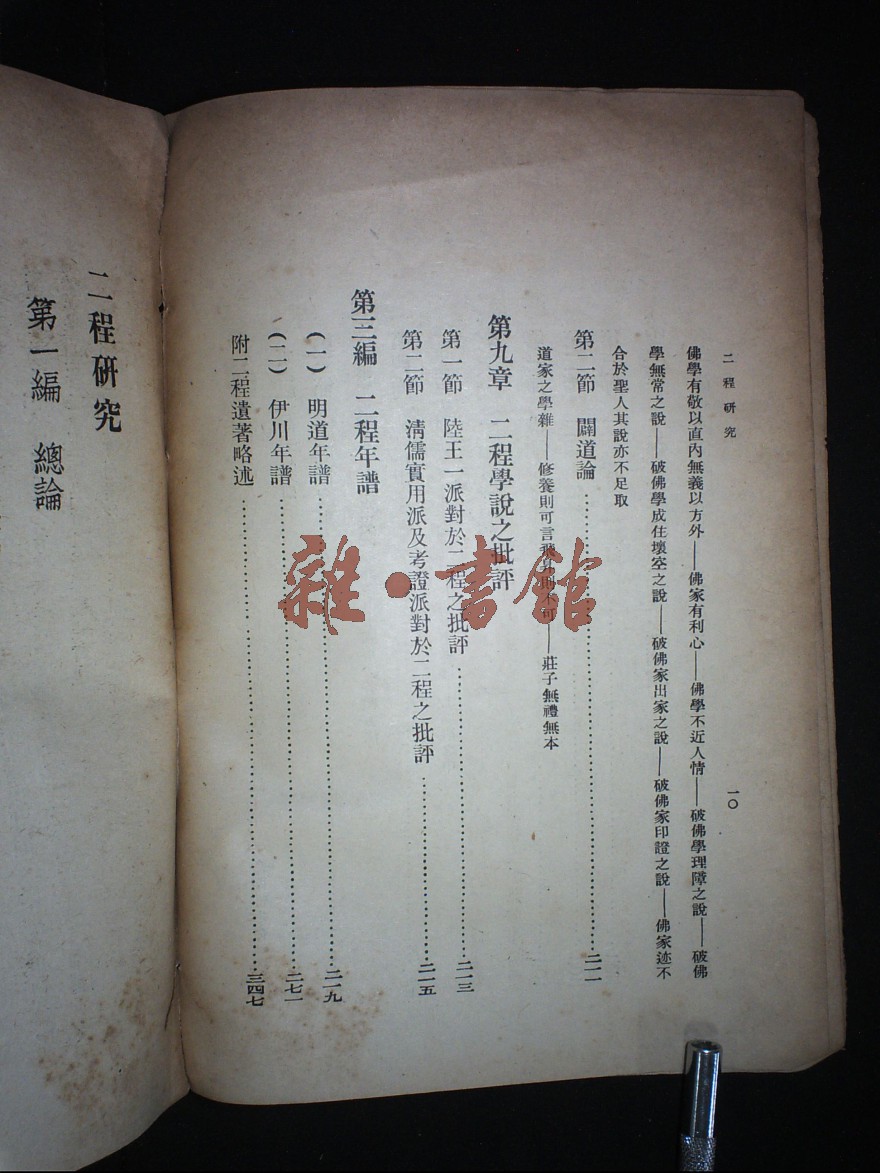 二程研究
一〇
佛學有敬以直內無義以方外——佛家有利心——佛學不近人情——破佛學理障之說——破佛
學無常之說——破佛學成住壞空之說——破佛家出家之說——破佛家印證之說——佛家迹不
合於聖人其說亦不足取
第二節 闢道論……二一一
道家之學雜——修養則可言飛昇則不可——莊子無禮無本
第九章 二程學說之批評
第一節 陸王一派對於二程之批評……二一三
第二節 清儒實用派及考證派對於二程之批評……二一五
第三編 二程年譜
(一) 明道年譜……二一九
(二) 伊川年譜……二七一
附二程遺著略述……三四七
二程研究
第一編 總論
雜·書館